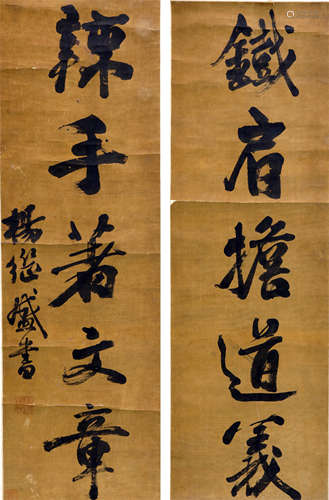 鐵肩擔道義
辣手著文章
楊繼盛書